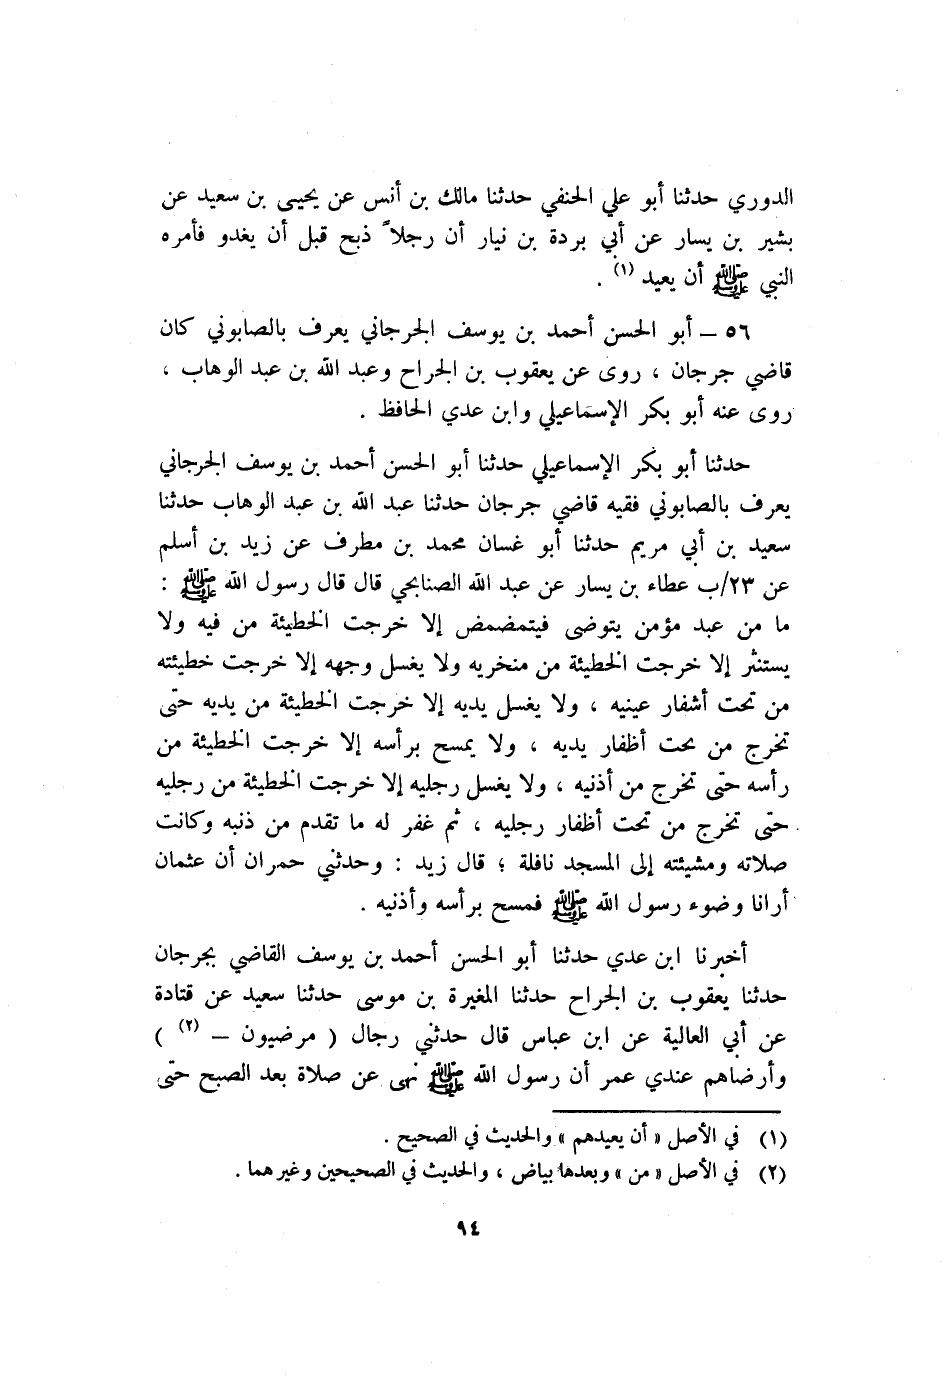 الدوري حدثنا أبو علي الحنفي حدثنا مالك بن أنس عن يحيى بن سعيد عن
بشير بن يسار عن أبي بردة بن نيار أن رجلاً ذبح قبل أن يغدو فأمره
النبي ﷺ أن يعيد (١) .
٥٦ – أبو الحسن أحمد بن يوسف الجرجاني يعرف بالصابوني كان
قاضي جرجان ، روى عن يعقوب بن الجراح وعبد الله بن عبد الوهاب ،
روى عنه أبو بكر الإسماعيلي وابن عدي الحافظ .
حدثنا أبو بكر الإسماعيلي حدثنا أبو الحسن أحمد بن يوسف الجرجاني
يعرف بالصابوني فقيه قاضي جرجان حدثنا عبد الله بن عبد الوهاب حدثنا
سعيد بن أبي مريم حدثنا أبو غسان محمد بن مطرف عن زيد بن أسلم
عن ٢٣/ب عطاء بن يسار عن عبد الله الصنابحي قال قال رسول الله ﷺ :
ما من عبد مؤمن يتوضى فيتمضمض إلا خرجت الخطيئة من فيه ولا
يستنثر إلا خرجت الخطيئة من منخريه ولا يغسل وجهه إلا خرجت خطيئته
من تحت أشفار عينيه ، ولا يغسل يديه إلا خرجت الخطيئة من يديه حتى
تخرج من تحت أظفار يديه ، ولا يمسح برأسه إلا خرجت الخطيئة من
رأسه حتى تخرج من أذنيه ، ولا يغسل رجليه إلا خرجت الخطيئة من رجليه
حتى تخرج من تحت أظفار رجليه ، ثم غفر له ما تقدم من ذنبه وكانت
صلاته ومشيئته إلى المسجد نافلة ؛ قال زيد : وحدثني حمران أن عثمان
أرانا وضوء رسول الله ﷺ فمسح برأسه وأذنيه .
أخبرنا ابن عدي حدثنا أبو الحسن أحمد بن يوسف القاضي بجرجان
حدثنا يعقوب بن الجراح حدثنا المغيرة بن موسى حدثنا سعيد عن قتادة
عن أبي العالية عن ابن عباس قال حدثني رجال ( مرضيون – (٢) )
وأرضاهم عندي عمر أن رسول الله ﷺ نهى عن صلاة بعد الصبح حتى
(١) في الأصل « أن يعيدهم » والحديث في الصحيح .
(٢) في الأصل « من » وبعدها بياض ، والحديث في الصحيحين وغيرهما .
٩٤